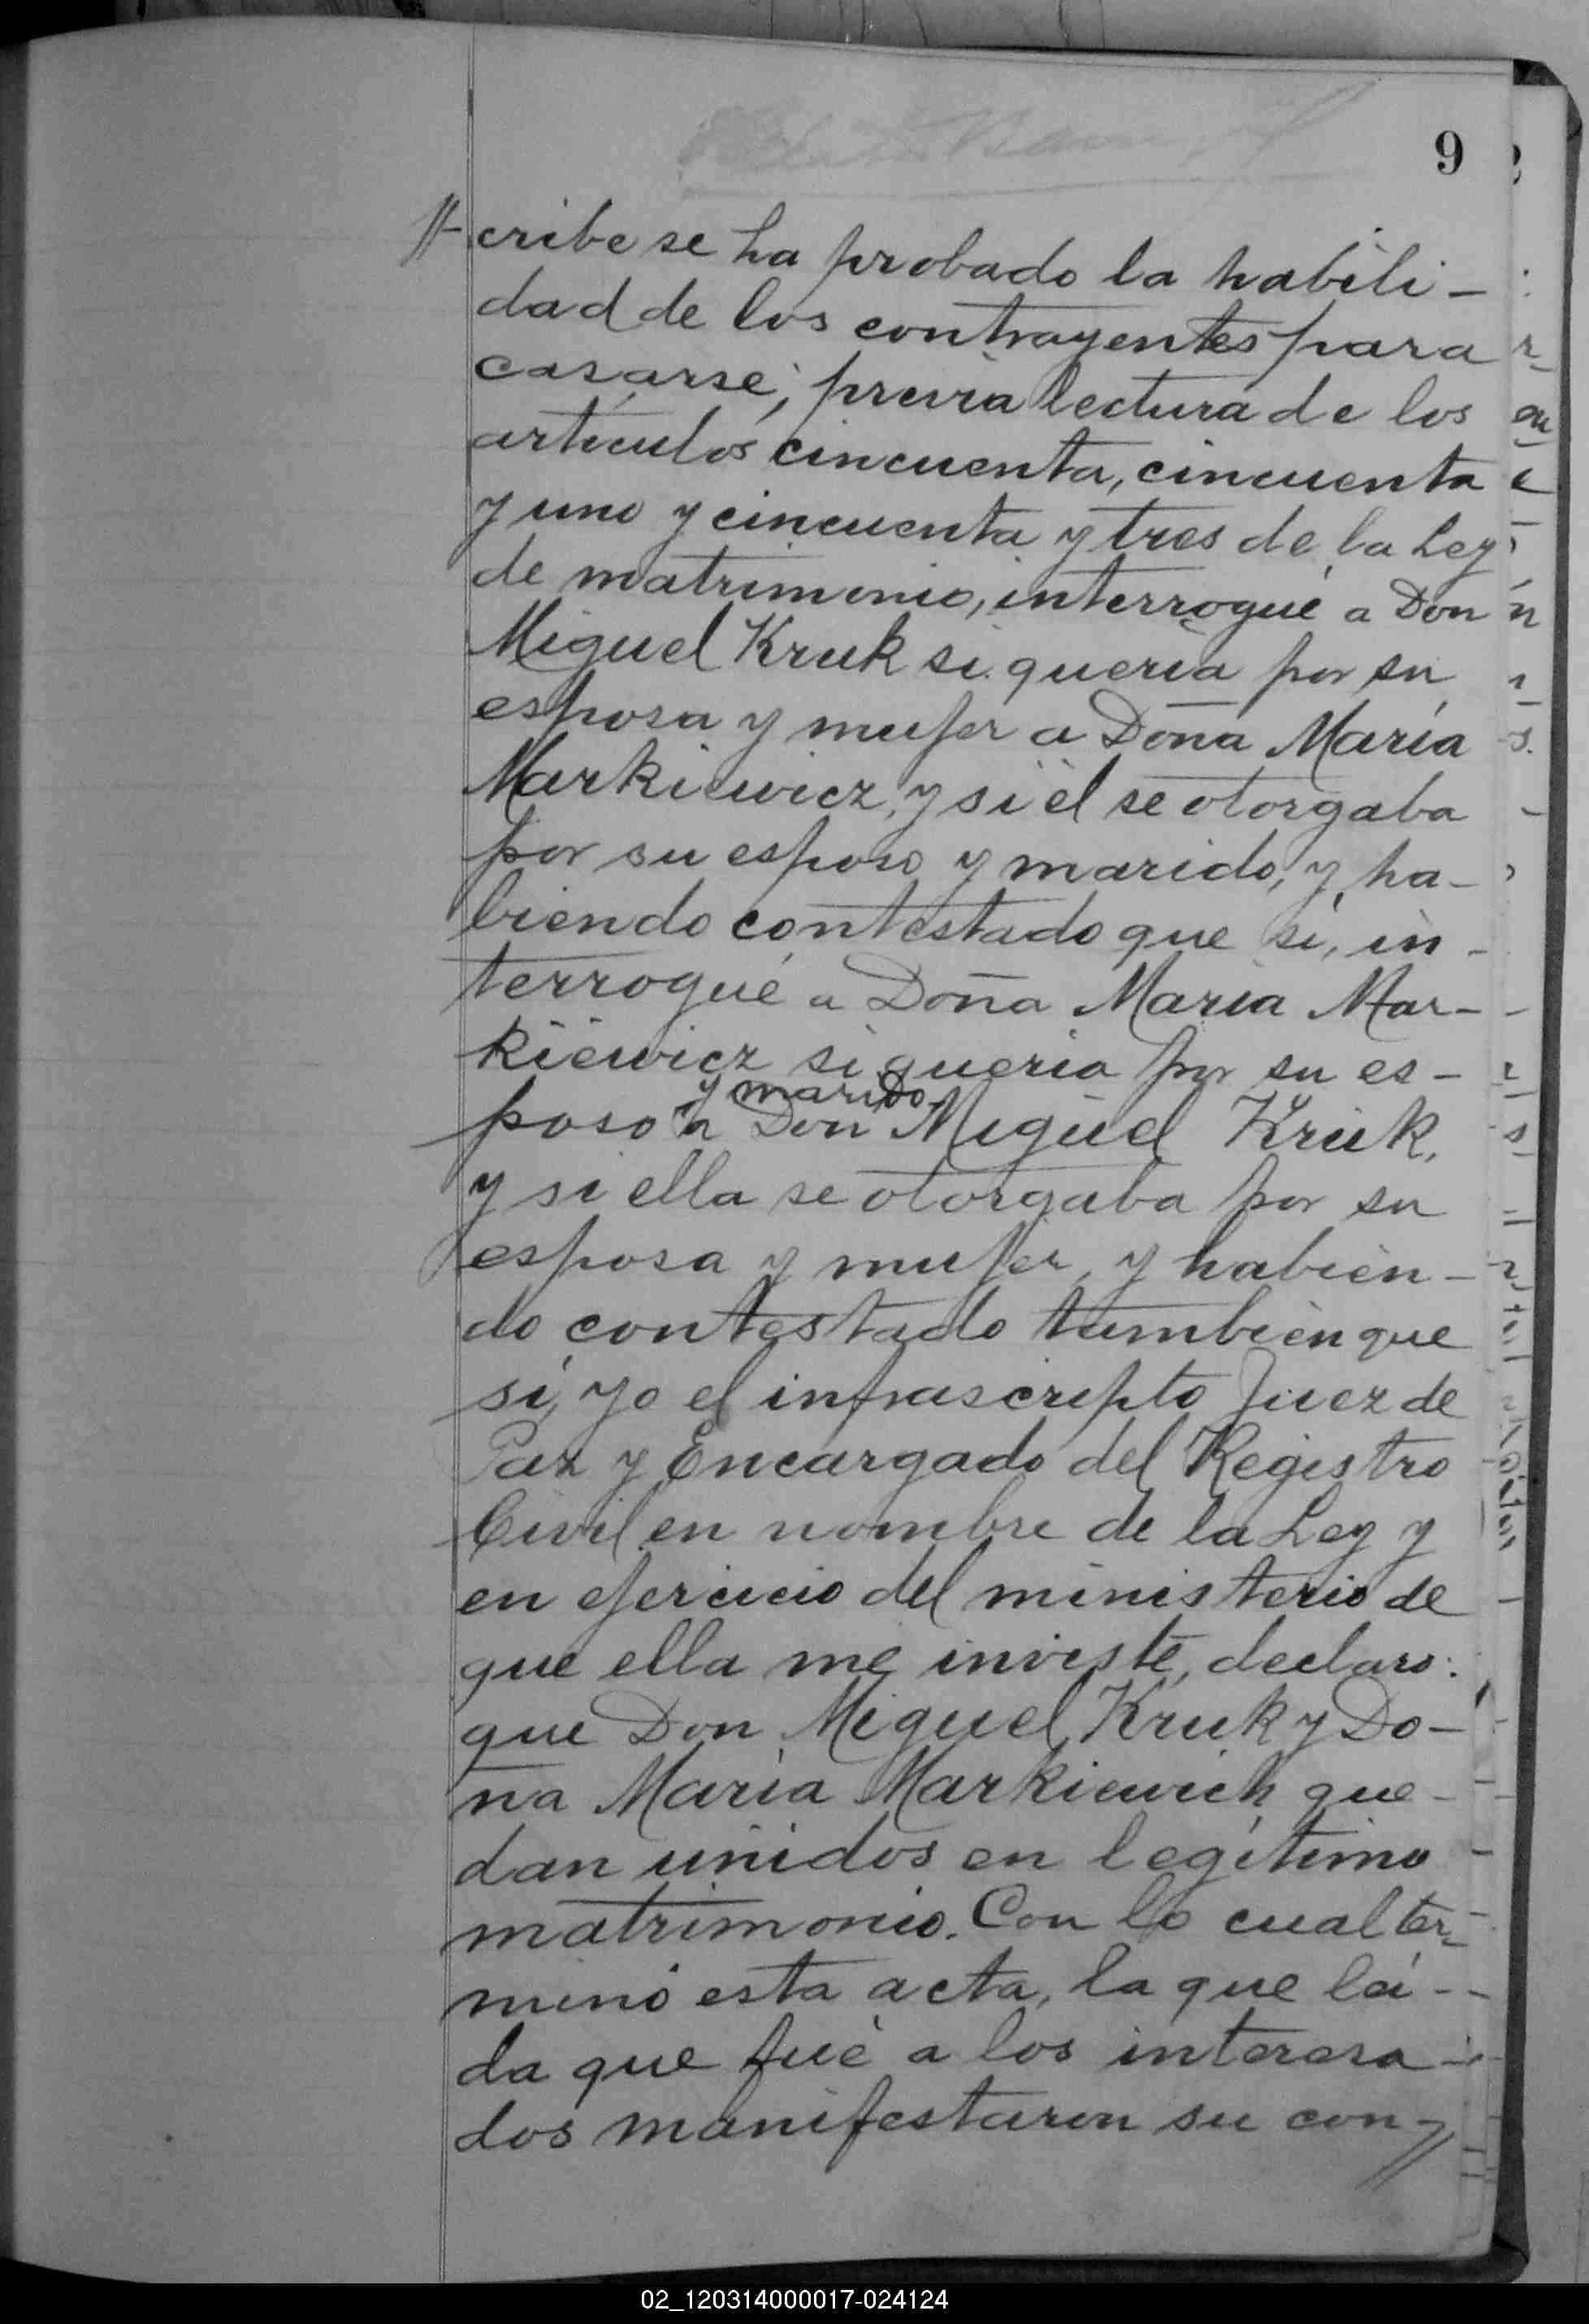 9
cribe se ha probado la habili-
dad de los contrayentes para
casarse; previa lectura de los
artículos cincuenta, cincuenta
y uno y cincuenta y tres de la Ley
de matrimonio, interrogué a Don
Miguel Kruk si quería por su
esposa y mujer a Doña María
Markiewicz, y si él se otorgaba
por su esposo y marido, y ha-
biendo contestado que sí, in-
terrogué a Doña María Mar-
kiewicz si quería por su es-
y marido
poso a Don Miguel Kruk,
y si ella se otorgaba por su
esposa y mujer, y habien-
do contestado también que
sí, yo el infrascripto Juez de
Paz y Encargado del Registro
Civil en nombre de la Ley y
en ejercicio del ministerio de
que ella me inviste, declaro:
que Don Miguel Kruk y Do-
ña María Markiewich que-
dan unidos en legítimo
matrimonio. Con lo cual ter-
minó esta acta, la que leí-
da que fué a los interesa-
dos manifestaron su con-//
02_120314000017-024124